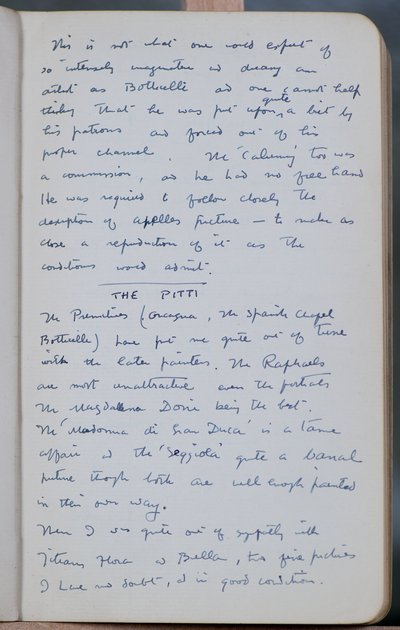 This is not what one would expect of
so intensely imaginative and dreamy an
artist as Botticelli and one cannot help
thinking that he was put upon quite a bit by
his patrons and forced out of his
proper channel. The 'Calumny' too was
a commission, and he had no free hand
He was required to follow closely the
description of Apelles picture — to make as
close a reproduction of it as the
conditions would admit.
THE PITTI
The Primitives (Orcagna, The Spanish Chapel
Botticelli) have put me quite out of tune
with the later painters. The Raphaels
are most unattractive even the portraits
The Magdalena Donie being the best.
The 'Madonna di Gran Duca' is a tame
affair and the 'Seggiola' quite a banal
picture though both are well enough painted
in their own way.
Then I was quite out of sympathy with
Titians Flora and Bella, two fine pictures
I have no doubt, and in good condition.